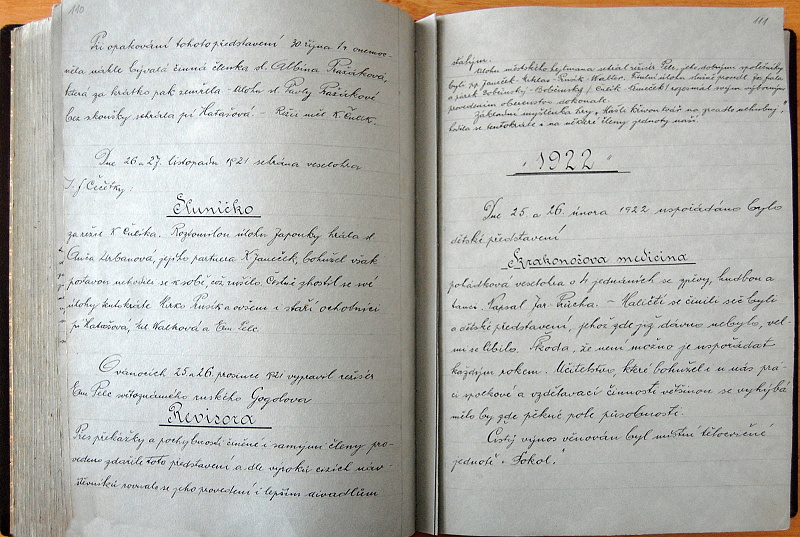 110
Při opakování tohoto představení 30 října t.r. onemoc-
něla náhle bývalá činná členka sl. Albína Pražáková,
která za krátko pak zemřela - Úlohu sl. Pavly Pražákové
bez zkoušky sehrála pí Hatašová. - Režii měl K. Čulík.
Dne 26 a 27. listopadu 1921 sehrána veselohra
J. f. Čečetky:
Sluníčko
za režie K Čulíka. Roztomilou úlohu Japonky hrála sl.
Anša Urbanová, jejího partnera K Janeček, bohužel však
postavou nehodili se k sobě, což rušilo. Čestně zhostil se své
úlohy kutilkráte Mirko Rusík a ovšem i staří ochotníci
pí Hatašová, Kar Walková a Em Pelc.
O vánocích 25. a 26. prosince 1921 vypravil režisér
Em Pelc světoznámého ruského Gogolova
Revisora
Přes překážky a pochybnosti činěné i samými členy pro-
vedeno zdařile toto představení a dle výroků cizích náv-
štěvníků rovnalo se jeho provedení i lepším divadlům
111
stálým.
Úlohu městského hejtmana sehrál režisér Pelc, jeho zdatnými společníky
byli pp. Janeček Rusík - Walter. Titulní úlohu slušně provedl
a párek Dobčinský - Bobčinský / Čulík - Bureček / rozesmál svým výborným
provedením obecenstvo dokonale.
Základní myšlenka hry „Máš-li křivou tvář na zrcadlo nehubuj",
hodila se tentokráte i na některé členy jednoty naší.
„1922"
Dne 25 a 26. února 1922 uspořádáno bylo
dětské představení
Krakonošova medicina
pohádková veselohra o 4 jednáních se zpěvy, hudbou a
tanci. Napsal Jar. Průcha. - Maličtí se činili seč byli
a dětské představení, jehož zde již dávno nebylo, vel-
mi se líbilo. Škoda, že není možno je uspořádat
každým rokem. Učitelstvo, které bohužel i u nás prá-
ci spolkové a vzdělávací činnosti většinou se vyhýbá
mělo by zde pěkné pole působnosti.
Čistý výnos věnován byl místní tělocvičné
jednotě „Sokol."